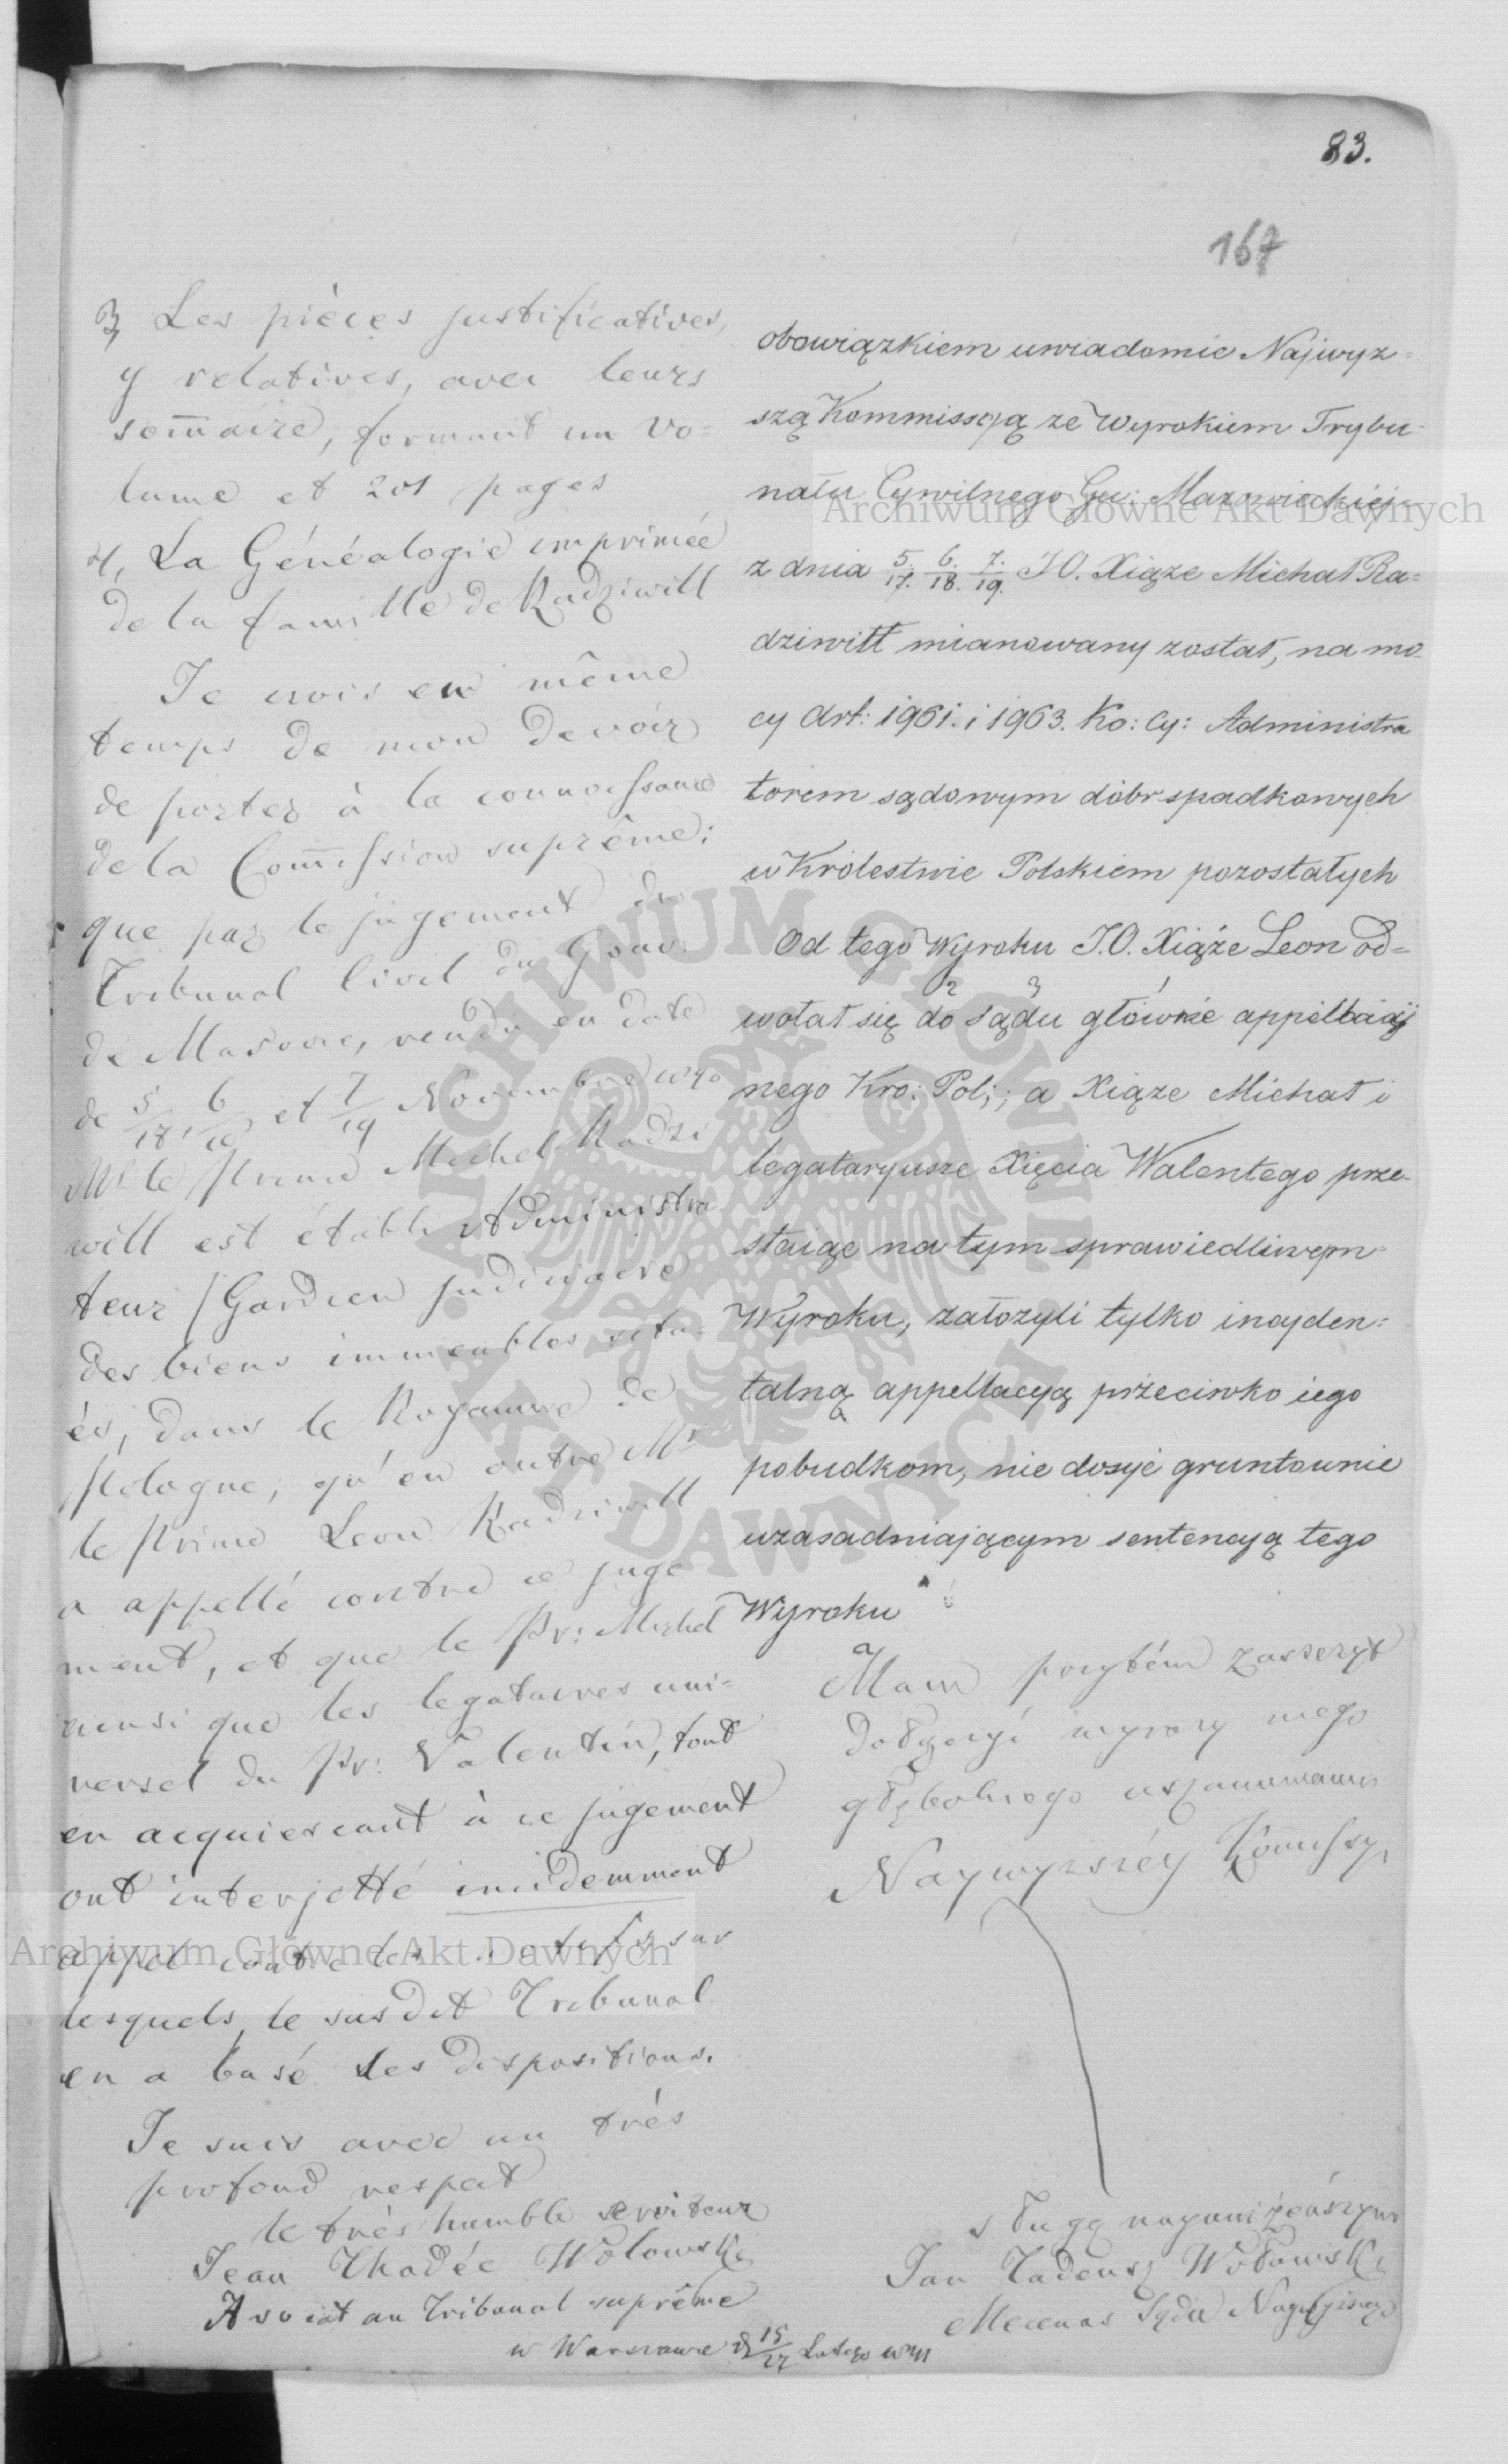 83.
167
3, Les pièces justificatives,
y relatives, avec leurs
som̄aire, formant un vo=
lume et 201 pages
4, La Généalogie imprimée
de la famille de Radziwill
Je crois en même
temps de mon devoir
de porter à la connoissance
de la Com̄ission suprême;
que par le jugement du
Tribunal Civil du Gouv:
de Masovie, rendu en date
de 5/18, 6/18 et 7/19 Novembre
Mr le Prince Michel Radzi
will est établi Administra
teur / Gardien judiciaire
des biens immeubles situ=
és, dans le Royaume de
Pologne, qu'en outre Mr
le Prince Leon Radziwill
a appellé contre ce juge
ment, et que le Pr: Michel
ainsi que les legataires uni=
versel du Pr: Valentin, tout
en acquiescant à ce jugement
ont interjetté incidemment
appel contre les motifs sur
lesquels, le sus dit Tribunal
en a basé les dispositions.
Je suis avec un très
profond respect
le très humble serviteur
Jean Thadée Wolowski
Avocat au Tribunal suprême
w Warszawie d 15/27 Lutego
obowiązkiem uwiadomić Najwyz=
szą Kommissyją ze Wyrokiem Trybu=
nału Cywilnego Gu: Mazowieckiej
z dnia 5./17. 6./18. 7./19. J.O. Xiąze Michał Ra=
dziwiłł mianowany został, na mo=
cy Art: 1961. i 1963. Ko: Cy: Administra
torem sądowym dóbr spadkowych
w Królestwie Polskiem pozostałych
Od tego Wyroku J.O. Xiąże Leon od=
2 3 1
wołał się do Sądu głównie appellacij
nego Kro: Pol:; a Xiąze Michał i
legataryusze Xięcia Walentego prze-
staiąc na tym sprawiedliwym
Wyroku, założyli tylko incyden=
talną appellacyą przeciwko iego
pobudkom, nie dosyć gruntownie
uzasadniającym sentencyą tego
Wyroku
Mam przytém zaszczyt
dołączyć wyrazy mego
głębokiego uszanowania
Naywyzszéy Kom̄issyi
sługą nayuniżeńszym
Jan Tadeusz Wołowski
Mecenas Sądu Naywyższego
Archiwum Główne Akt Dawnych
Archiwum Główne Akt Dawnych
ARCHIWUM GŁÓWNE AKT DAWNYCH